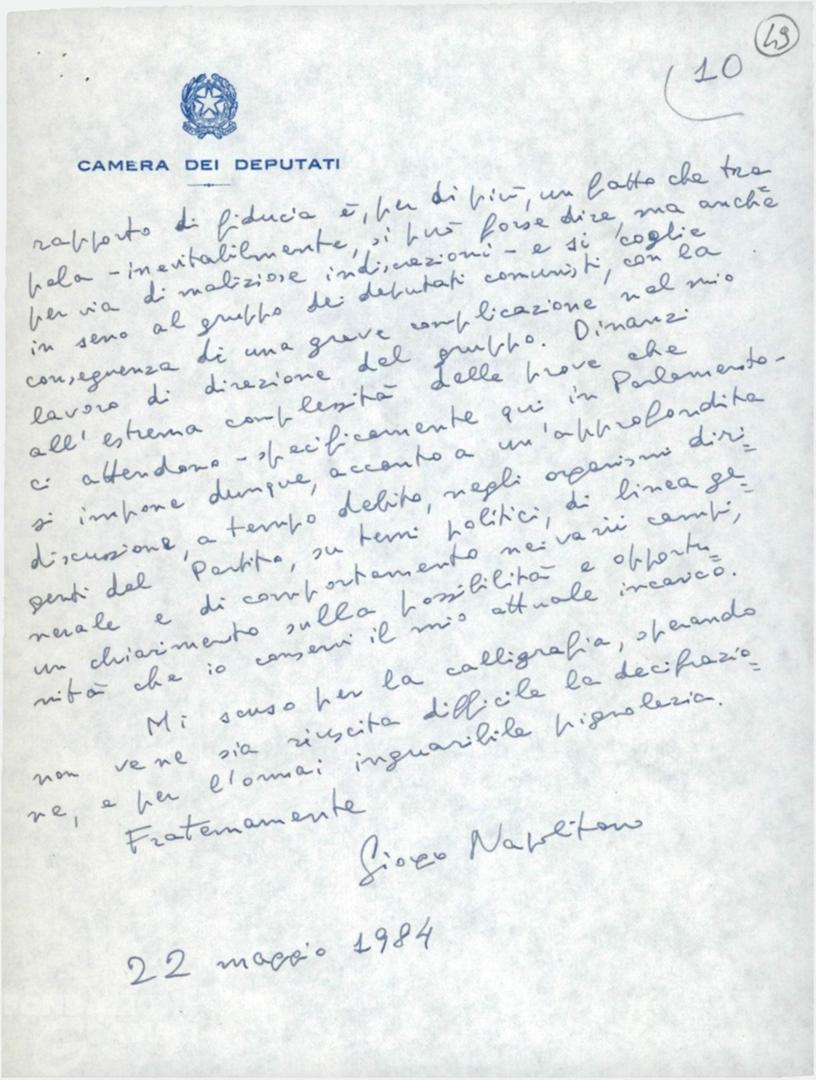 49
10
CAMERA DEI DEPUTATI
rapporto di fiducia è, per di più, un fatto che tra
pela - inevitabilmente, si può forse dire, ma anche
per via di maliziose indiscrezioni - e si coglie
in seno al gruppo dei deputati comunisti, con la
conseguenza di una grave complicazione nel mio
lavoro di direzione del gruppo. Dinanzi
all'estrema complessità delle prove che
ci attendono - specificamente qui in Parlamento -
si impone dunque, accanto a un'approfondita
discussione, a tempo debito, negli organismi diri=
genti del Partito, su temi politici, di linea ge=
nerale e di comportamento nei varii campi,
un chiarimento sulla possibilità e opportu=
nità che io conservi il mio attuale incarico.
Mi scuso per la calligrafia, sperando
non ve ne sia riuscita difficile la decifrazio=
ne, e per l'ormai inguaribile pignoleria.
Fraternamente
Giorgio Napolitano
22 maggio 1984